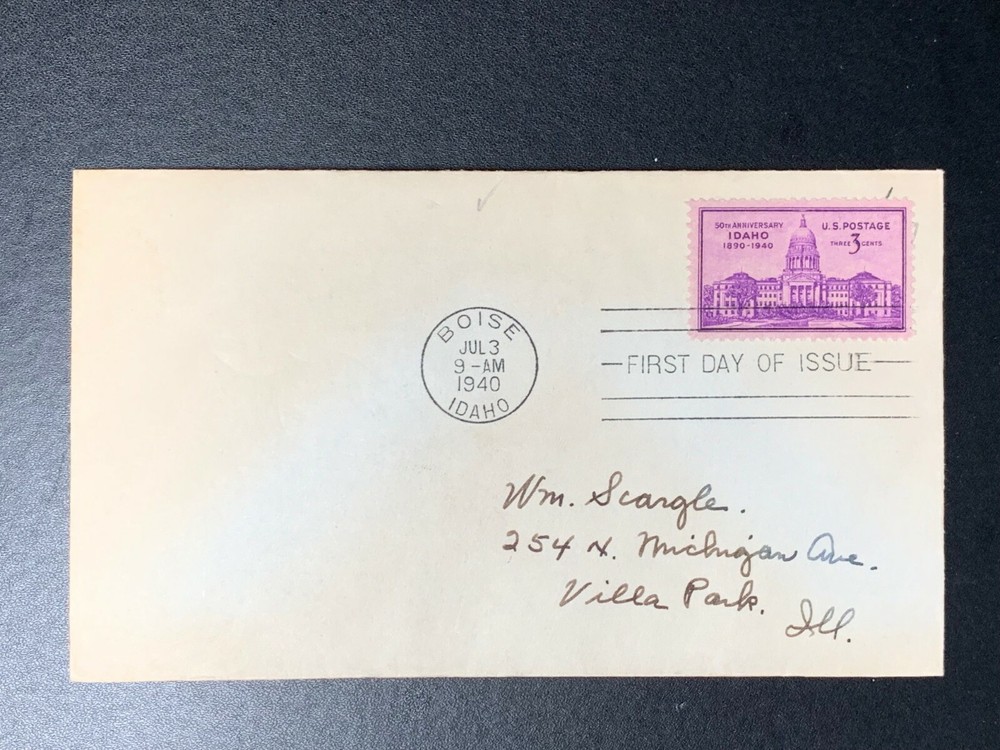 50TH ANNIVERSARY
IDAHO
1890-1940
U.S. POSTAGE
THREE 3 CENTS
BOISE
JUL 3
9-AM
1940
IDAHO
FIRST DAY OF ISSUE
Wm. Scargle.
254 N. Michigan Ave.
Villa Park.
Ill.